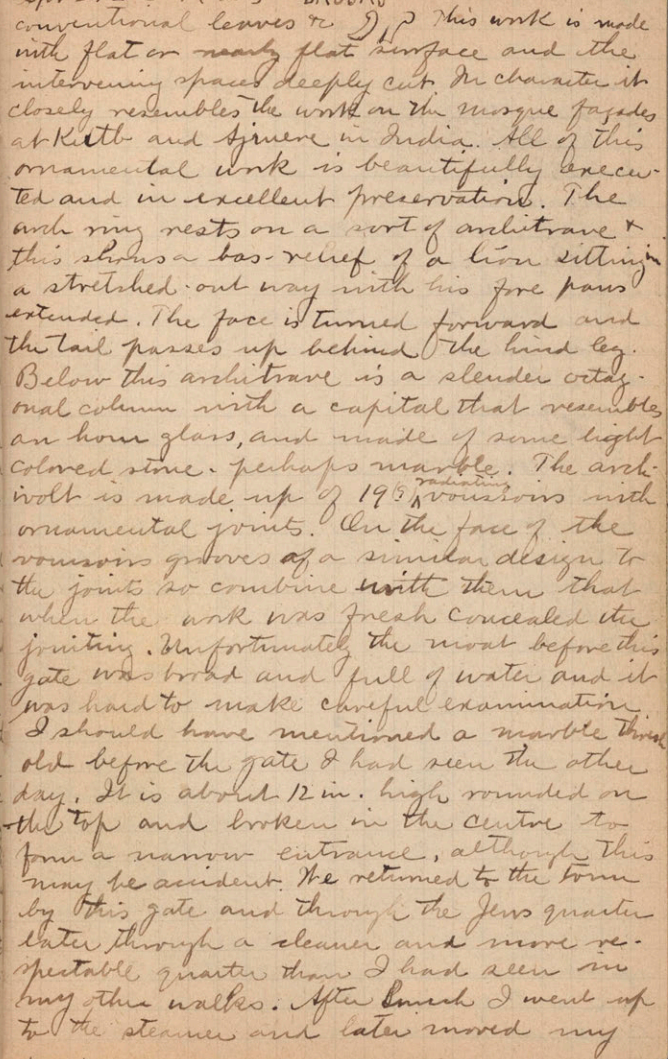 conventional leaves &c This work is made
with flat or nearly flat surface and the
intervening spaces deeply cut In character it
closely resembles the work on the mosque façades
at Kutb and Ajmere in India. All of this
ornamental work is beautifully execu-
ted and in excellent preservation. The
arch ring rests on a sort of architrave &
this shows a bas-relief of a lion sitting in
a stretched-out way with his fore paws
extended. The face is turned forward and
the tail passes up behind the hind leg.
Below this architrave is a slender octag-
onal column with a capital that resembles
an hour glass, and made of some light
colored stone - perhaps marble. The arch-
ivolt is made up of 19(?) radiating voussoirs with
ornamental joints. On the face of the
voussoirs grooves of a similar design to
the joints so combine with them that
when the work was fresh concealed the
jointing. Unfortunately the moat before this
gate was broad and full of water and it
was hard to make careful examination
I should have mentioned a marble thresh
old before the gate I had seen the other
day. It is about 12 in. high rounded on
the top and broken in the centre to
form a narrow entrance, although this
may be accident. We returned to the town
by this gate and through the Jews quarter
later through a cleaner and more re-
spectable quarter than I had seen in
my other walks. After lunch I went up
to the steamer and later moved my